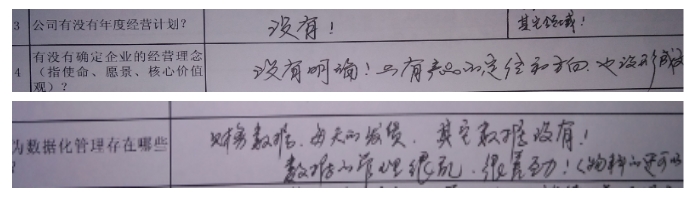 3 公司有没有年度经营计划？ 没有！ 其它领域！
4 有没有确定企业的经营理念（指使命、愿景、核心价值观）？
没有明确！只有产品的定位和方向，也没形成
为数据化管理存在哪些
财务数据，每天的发货，其它数据没有！
数据的管理很乱，很差劲！（物料的还可以